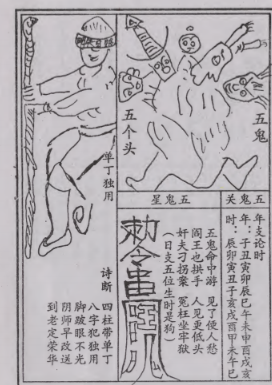 五鬼
五个头
五鬼关
五鬼星
年支论时
年：子丑寅卯辰巳午未申酉戌亥
时：辰卯寅丑子亥戌酉申未午巳
五鬼命中游 见了使人愁
阎王也拱手 人见更低头
奸夫刁拐案 冤枉坐牢狱
（日支五位生时是狗）
勅令
单丁独用
诗断
四柱带单丁
八字犯独用
脚跛眼不光
阴师早改送
到老定荣华